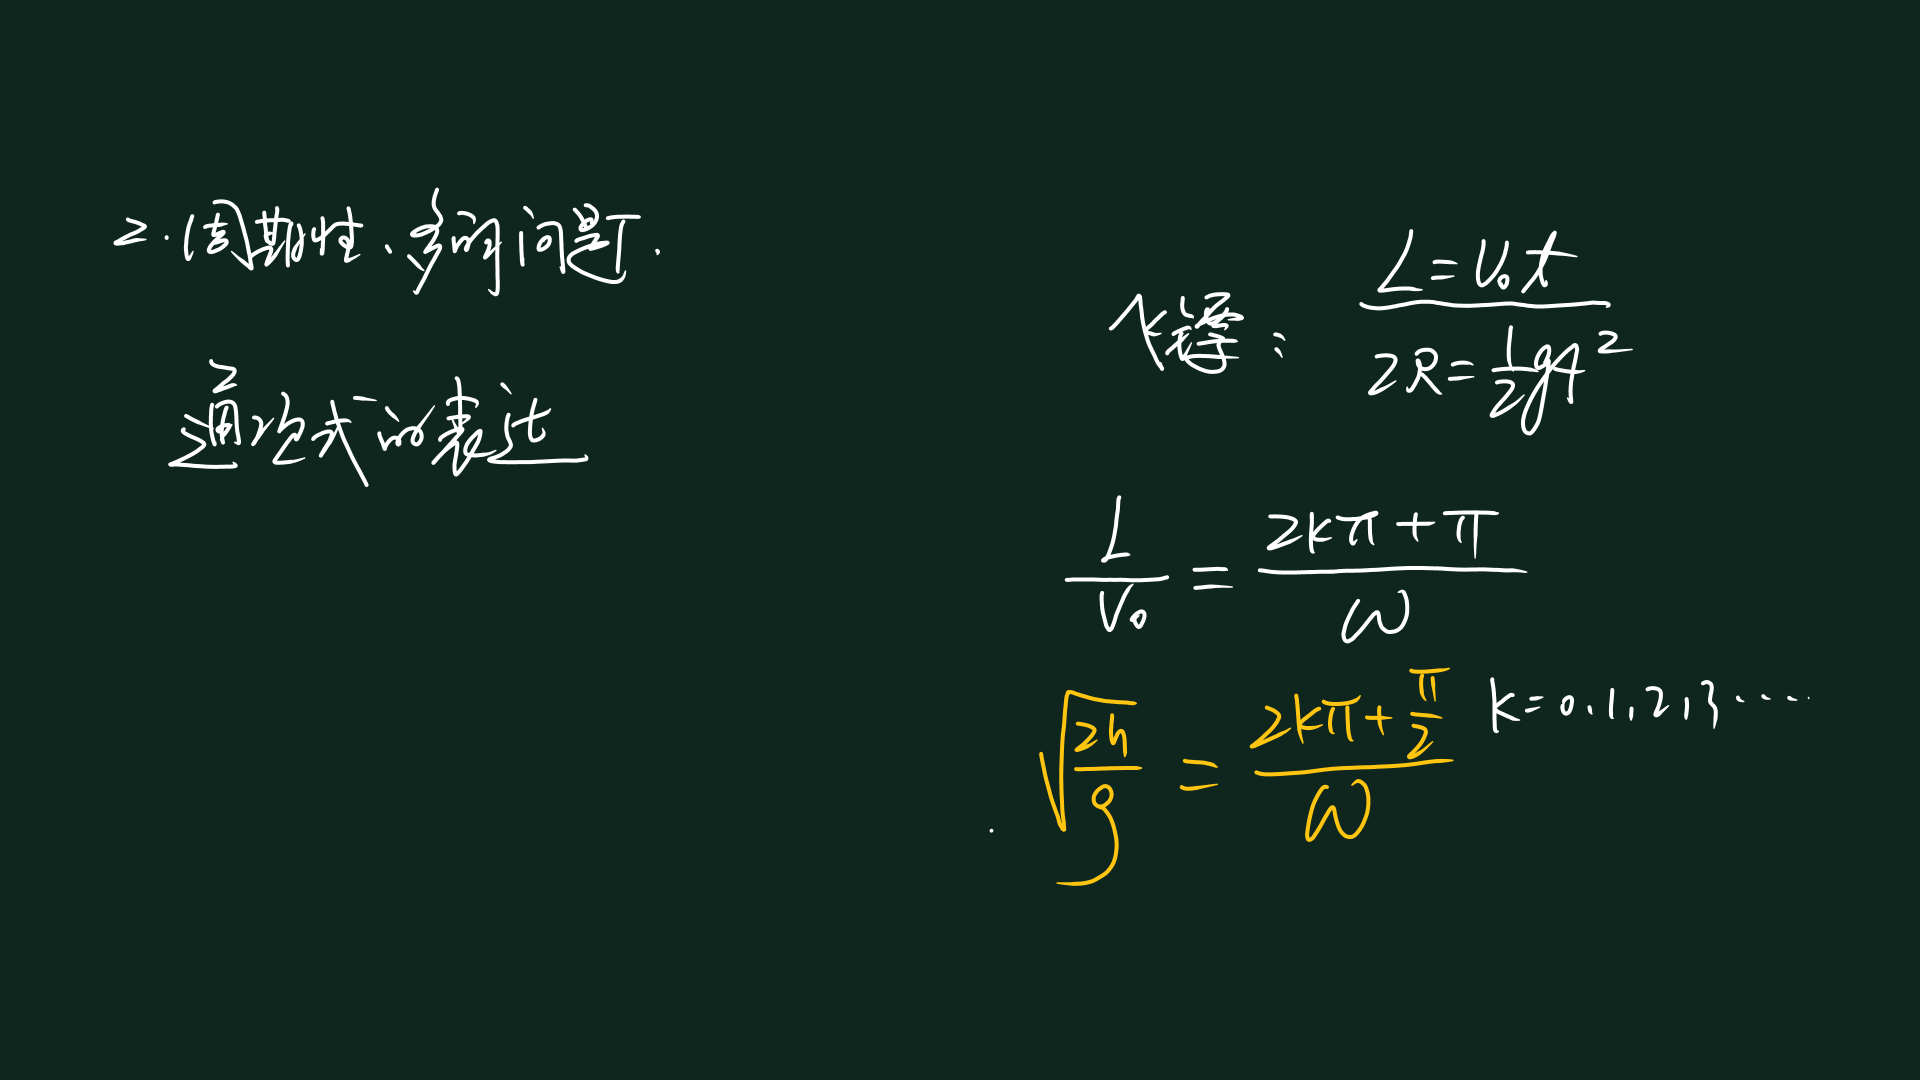 2. 周期性、多解问题.
2
通项式的表达
飞镖:
L=V₀t
2R=\frac{1}{2}gt²
\frac{L}{V₀} = \frac{2kπ+π}{ω}
\sqrt{\frac{2h}{g}} = \frac{2kπ+\frac{π}{2}}{ω} k=0,1,2,3····